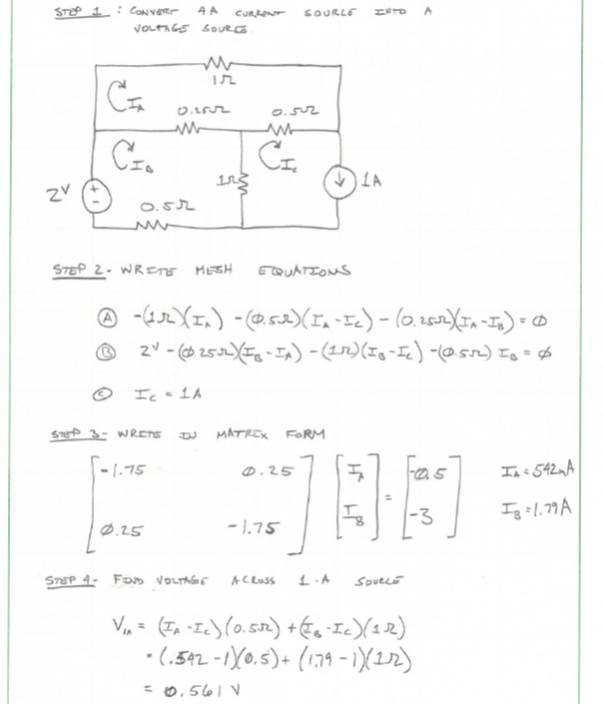 STEP 1 : CONVERT 4A CURRENT SOURCE INTO A
VOLTAGE SOURCE.
1Ω
I_A
0.25Ω
0.5Ω
I_B
I_C
1Ω
1A
2V
+
-
0.5Ω
STEP 2- WRITE MESH EQUATIONS
Ⓐ -(1Ω)(I_A) - (0.5Ω)(I_A - I_C) - (0.25Ω)(I_A - I_B) = 0
Ⓑ 2V - (0.25Ω)(I_B - I_A) - (1Ω)(I_B - I_C) - (0.5Ω) I_B = 0
Ⓒ I_C = 1A
STEP 3- WRITE IN MATRIX FORM
[-1.75 0.25] [I_A] = [-0.5] I_A = 542mA
[0.25 -1.75] [I_B] [-3] I_B = 1.79A
STEP 4- FIND VOLTAGE ACROSS 1-A SOURCE
V_1A = (I_A - I_C)(0.5Ω) + (I_B - I_C)(1Ω)
= (.542 - 1)(0.5) + (1.79 - 1)(1Ω)
= 0.561 V